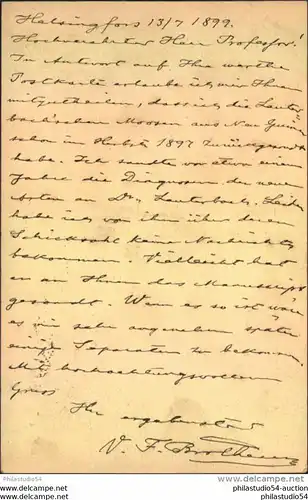 Helsingfors 13/7 1899.
Hochverehrter Herr Professor!
In Antwort auf Ihre werthe
Postkarte erlaube ich mir Ihnen
mitzutheilen, dass ich die Lauter-
bach'schen Moosen aus Neu Guinea
schon im Herbst 1897 zurückgesandt
habe. Ich sandte vor etwa einem
Jahre die Diagnosen der neuen
Arten an Dr. Lauterbach. Leider
habe ich von ihm über deren
Schicksahl keine Nachricht
bekommen. Vielleicht hat
er an Ihnen das Manuscript
gesandt. Wenn es so ist wäre
es mir sehr angenehm später
einige Separaten zu bekommen.
Mit hochachtungsvollem
Gruss
Ihr ergebenster
V. F. Brotherus
Philastudio54 - philastudio54.com - www.philastudio-auction